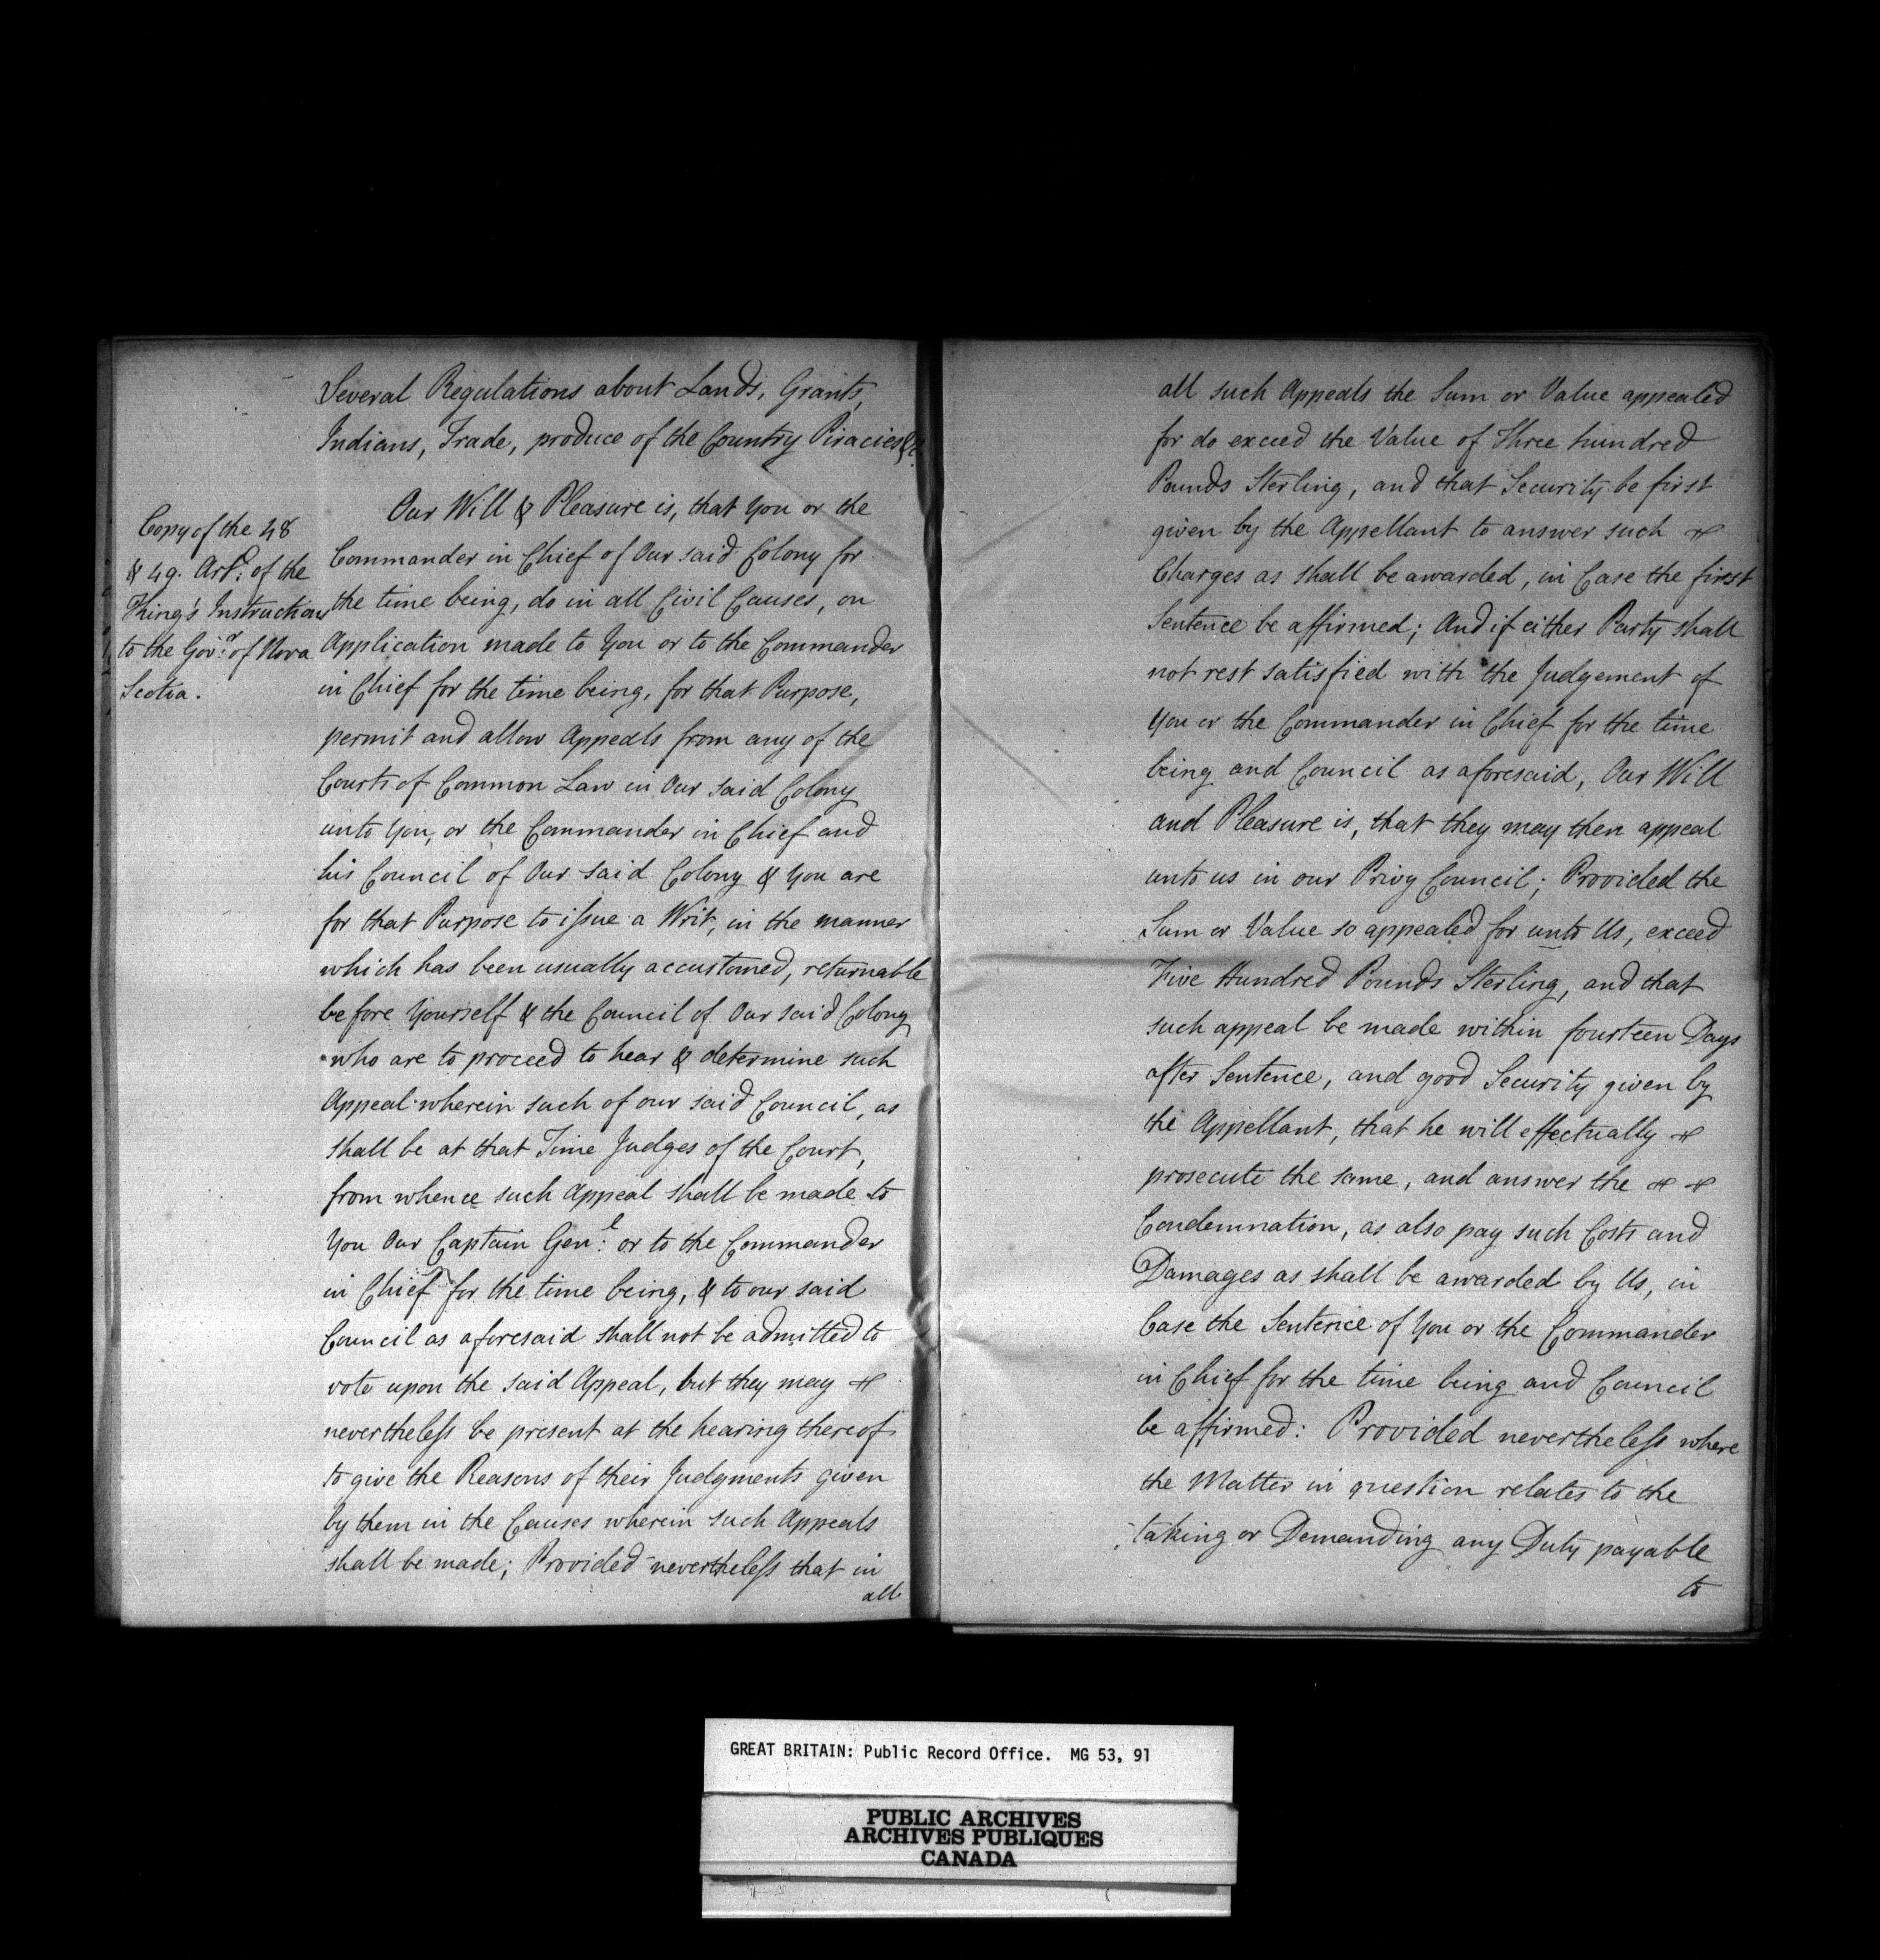 Several Regulations about Lands, Grants,
Indians, Trade, produce of the Country Piracies &c.
Copy of the 48
& 49. Art: of the
King's Instructions
to the Gov.r of Nova
Scotia.
Our Will & Pleasure is, that You or the
Commander in Chief of Our said Colony for
the time being, do in all Civil Causes, on
Application made to You or to the Commander
in Chief for the time being, for that Purpose,
permit and allow Appeals from any of the
Courts of Common Law in Our said Colony
unto You, or the Commander in Chief and
his Council of Our said Colony & You are
for that Purpose to issue a Writ, in the manner
which has been usually accustomed, returnable
before Yourself & the Council of Our said Colony
who are to proceed to hear & determine such
Appeal wherein such of our said Council, as
shall be at that Time Judges of the Court,
from whence such Appeal shall be made to
You Our Captain Gen:l or to the Commander
in Chief for the time being, & to our said
Council as aforesaid shall not be admitted to
vote upon the said Appeal, but they may
nevertheless be present at the hearing thereof
to give the Reasons of their Judgments given
by them in the Causes wherein such Appeals
shall be made; Provided nevertheless that in
all
all such Appeals the Sum or Value appealed
for do exceed the Value of Three hundred
Pounds Sterling, and that Security be first
given by the Appellant to answer such
Charges as shall be awarded, in Case the first
Sentence be affirmed; And if either Party shall
not rest satisfied with the Judgement of
You or the Commander in Chief for the time
being and Council as aforesaid, Our Will
and Pleasure is, that they may then appeal
unto us in our Privy Council; Provided the
Sum or Value so appealed for unto Us, exceed
Five Hundred Pounds Sterling, and that
such appeal be made within fourteen Days
after Sentence, and good Security given by
the Appellant, that he will effectually
prosecute the same, and answer the
Condemnation, as also pay such Costs and
Damages as shall be awarded by Us, in
Case the Sentence of You or the Commander
in Chief for the time being and Council
be affirmed: Provided nevertheless where
the Matter in question relates to the
taking or Demanding any Duty payable
to
GREAT BRITAIN: Public Record Office. MG 53, 91
PUBLIC ARCHIVES
ARCHIVES PUBLIQUES
CANADA